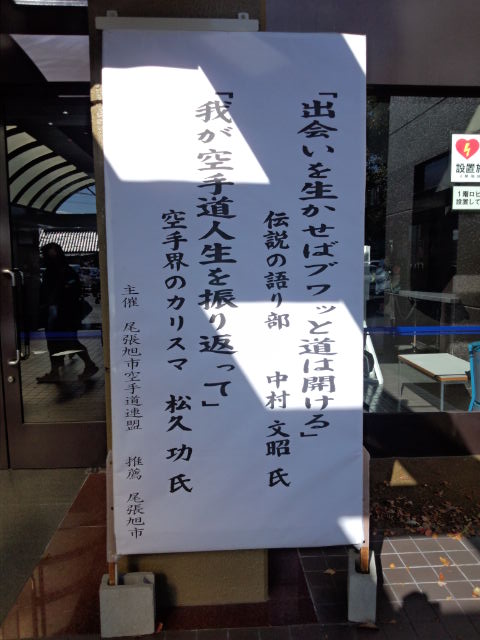 「出会いを生かせばブワッと道は開ける」
伝説の語り部　中村 文昭 氏
「我が空手道人生を振り返って」
空手界のカリスマ　松久 功 氏
主催　尾張旭市空手道連盟　推薦　尾張旭市
設置
1階ロビ
設置して